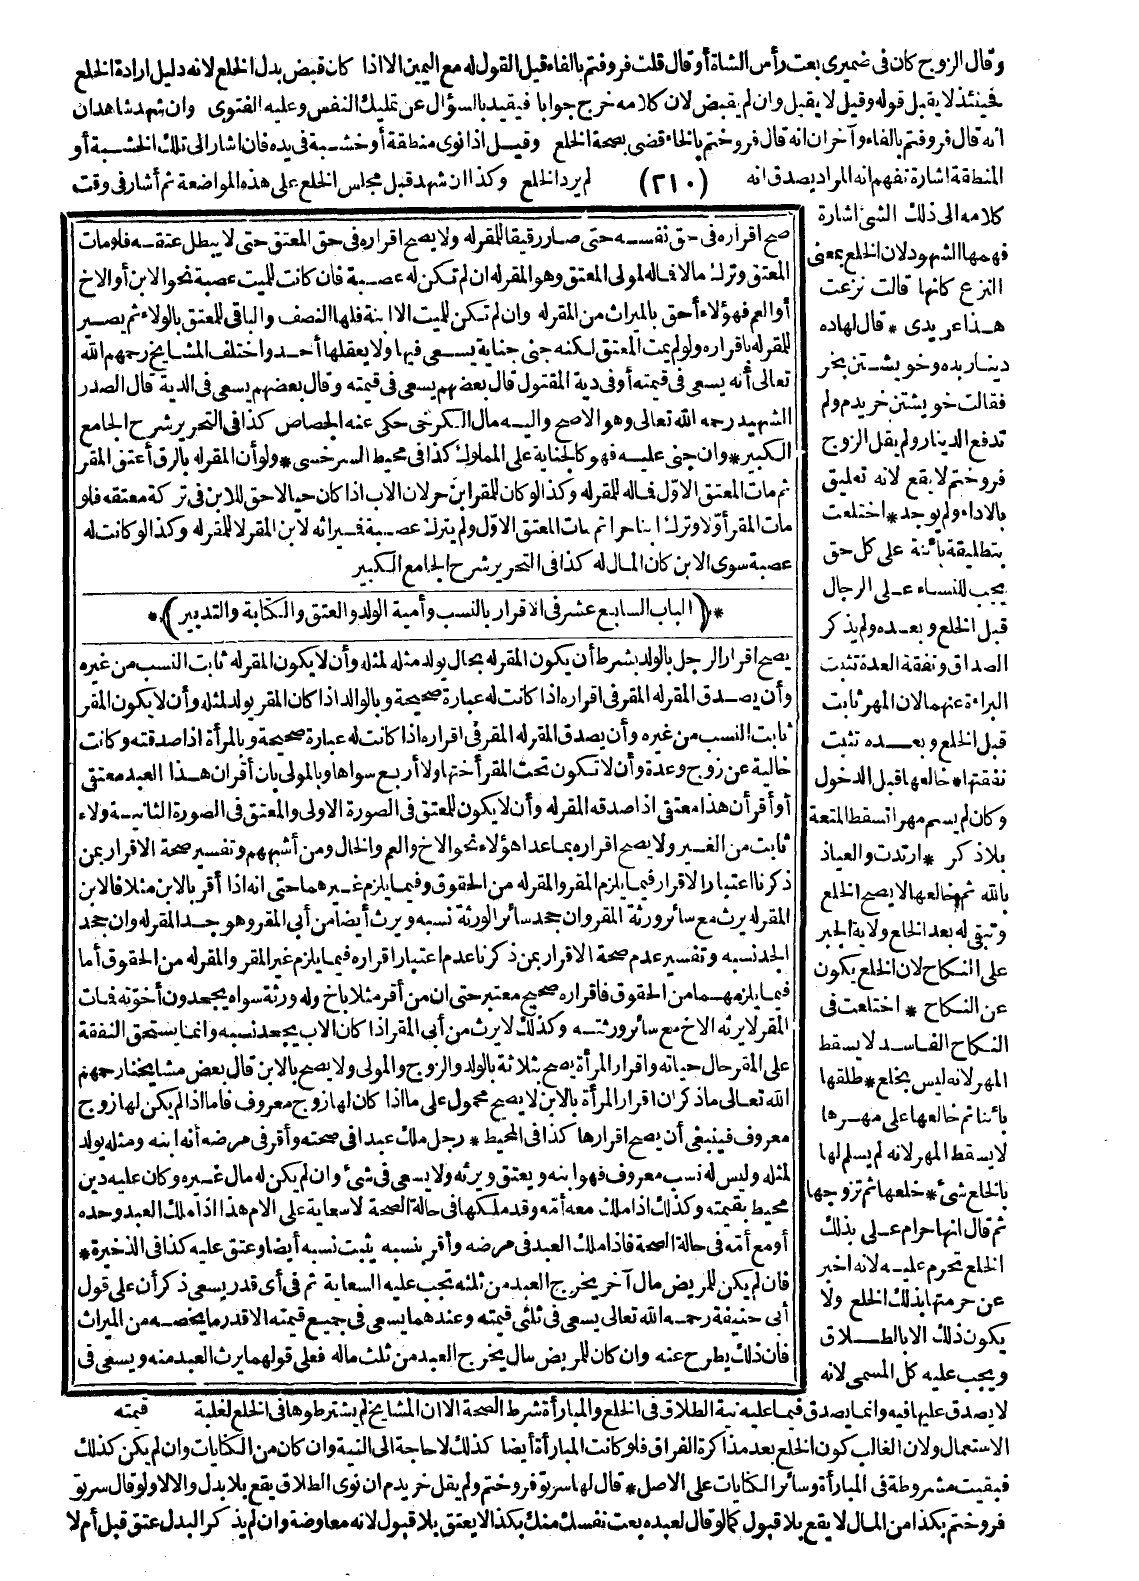 وقال الزوج كان فى ضميرى بعت رأس الشاة أو قال قلت فروفتم بالفاء قبل القول له مع اليمين الا اذا كان قبض بدل الخلع لانه دليل ارادة الخلع
فينئذ لا يقبل قوله وقيل لا يقبل وان لم يقبض لان كلامه خرج جوابا فيقيد بالسؤال عن تمليك النفس وعليه الفتوى وان شهد شاهدان
انه قال فروفتم بالفاء وآخران انه قال فروختم بالخاء قضى بصحة الخلع وقيل اذا نوى منطقة أو خشبة فى يده فان اشار الى تلك الخشبة أو
المنطقة اشارة تفهم انه المراد يصدق انه (٢١٠) لم يرد الخلع وكذا ان شهد قبل مجلس الخلع على هذه المواضعة ثم أشار فى وقت
كلامه الى ذلك الشئ اشارة
فهمها الشهود لان الخلع بمعنى
النزع كانها قالت نزعت
هذا عن يدى * قال لها ده
دينار بده وخويشتن بخر
فقالت خويشتن خريدم ولم
تدفع الدينار ولم يقل الزوج
فروختم لا يقع لانه تعليق
بالاداء ولم يوجد * اختلعت
بتطليقة بائنة على كل حق
يجب للنساء على الرجال
قبل الخلع وبعده ولم يذكر
الصداق ونفقة العدة تثبت
البراءة عنهما لان المهر ثابت
قبل الخلع وبعده تثبت
نفقتها * خالعها قبل الدخول
وكان لم يسم مهرا تسقط المتعة
بلا ذكر * ارتدت والعياذ
بالله ثم خالعها لا يصح الخلع
وتبقى له بعد الخلع ولاية الجبر
على النكاح لان الخلع يكون
عن النكاح * اختلعت فى
النكاح الفاسد لا يسقط
المهر لانه ليس بخلع * طلقها
بائنا ثم خالعها على مهرها
لا يسقط المهر لانه لم يسلم لها
بالخلع شئ * خلعها ثم تزوجها
ثم قال انها حرام على بذلك
الخلع تحرم عليه لانه اخبر
عن حرمتها بذلك الخلع ولا
يكون ذلك الا بالطلاق
ويجب عليه كل المسمى لانه
صح اقراره فى حق نفسه حتى صار رقيقا للمقر له ولا يصح اقراره فى حق المعتق حتى لا يبطل عتقه فلو مات
المعتق وترك مالا فماله لمولى المعتق وهو المقر له ان لم تكن له عصبة فان كانت للميت عصبة نحو الابن أو الاخ
أو العم فهؤلاء أحق بالميراث من المقر له وان لم تكن للميت الا ابنة فلها النصف والباقى للمعتق بالولاء ثم يصير
للمقر له باقراره ولو لم يمت المعتق لكنه جنى جناية يسعى فيها ولا يعقلها أحد واختلف المشايخ رحمهم الله
تعالى أنه يسعى فى قيمته أو فى دية المقتول قال بعضهم يسعى فى قيمته وقال بعضهم يسعى فى الدية قال الصدر
الشهيد رحمه الله تعالى وهو الاصح واليه مال الكرخى حكى عنه الجصاص كذا فى التحرير شرح الجامع
الكبير * وان جنى عليه فهو كالجناية على المملوك كذا فى محيط السرخسى * ولو أن المقر له بالرق أعتق المقر
ثم مات المعتق الاوّل فماله للمقر له وكذا لو كان للمقر ابن حر لان الاب اذا كان حيا لا حق للابن فى تركة معتقه فلو
مات المقر أوّلا وترك ابنا حرا ثم مات المعتق الاوّل ولم يترك عصبة فميراثه لابن المقر لا للمقر له وكذا لو كانت له
عصبة سوى الابن كان المال له كذا فى التحرير شرح الجامع الكبير
* ﴿الباب السابع عشر فى الاقرار بالنسب وأمية الولد والعتق والكتابة والتدبير﴾ *
يصح اقرار الرجل بالولد بشرط أن يكون المقر له بحال يولد مثله لمثله وأن لا يكون المقر له ثابت النسب من غيره
وأن يصدق المقر له المقر فى اقراره اذا كانت له عبارة صحيحة وبالوالد اذا كان المقر يولد لمثله وأن لا يكون المقر
ثابت النسب من غيره وأن يصدق المقر له المقر فى اقراره اذا كانت له عبارة صحيحة وبالمرأة اذا صدقته وكانت
خالية عن زوج وعدة وأن لا تكون تحت المقر أختها ولا أربع سواها وبالمولى بان أقر ان هذا العبد معتقى
أو أقر أن هذا معتقى اذا صدقه المقر له وأن لا يكون للمعتق فى الصورة الاولى والمعتق فى الصورة الثانية ولاء
ثابت من الغير ولا يصح اقراره بما عدا هؤلاء نحو الاخ والعم والخال ومن أشبههم وتفسير صحة الاقرار بمن
ذكرنا اعتبار الاقرار فيما يلزم المقر والمقر له من الحقوق وفيما يلزم غيرهما حتى انه اذا أقر بالابن مثلا فالابن
المقر له يرث مع سائر ورثة المقر وان جحد سائر الورثة نسبه ويرث أيضا من أبى المقر وهو جد المقر له وان جحد
الجد نسبه وتفسير عدم صحة الاقرار بمن ذكرنا عدم اعتبار اقراره فيما يلزم غير المقر والمقر له من الحقوق أما
فيما يلزمهما من الحقوق فاقراره صحيح معتبر حتى ان من أقر مثلا باخ وله ورثة سواه يجحدون أخوّته فمات
المقر لا يرثه الاخ مع سائر ورثته وكذلك لا يرث من أبى المقر اذا كان الاب يجحد نسبه وانما يستحق النفقة
على المقر حال حياته واقرار المرأة يصح بثلاثة بالولد والزوج والمولى ولا يصح بالابن قال بعض مشايخنا رحمهم
الله تعالى ما ذكر ان اقرار المرأة بالابن لا يصح محمول على ما اذا كان لها زوج معروف فاما اذا لم يكن لها زوج
معروف فينبغى أن يصح اقرارها كذا فى المحيط * رجل ملك عبدا فى صحته وأقر فى مرضه أنه ابنه ومثله يولد
لمثله وليس له نسب معروف فهو ابنه ويعتق ويرثه ولا يسعى فى شئ وان لم يكن له مال غيره وكان عليه دين
محيط بقيمته وكذلك اذا ملك معه أمّه وقد ملكها فى حالة الصحة لا سعاية على الام هذا اذا ملك العبد وحده
أو مع أمّه فى حالة الصحة فاذا ملك العبد فى مرضه وأقر بنسبه يثبت نسبه أيضا وعتق عليه كذا فى الذخيرة *
فان لم يكن للمريض مال آخر يخرج العبد من ثلثه تجب عليه السعاية ثم فى أى قدر يسعى ذكر أن على قول
أبى حنيفة رحمه الله تعالى يسعى فى ثلثى قيمته وعندهما يسعى فى جميع قيمته الا قدر ما يخصه من الميراث
فان ذلك يطرح عنه وان كان للمريض مال يخرج العبد من ثلث ماله فعلى قولهما يرث العبد منه ويسعى فى
لا يصدق عليها فيه وانما يصدق فيما عليه نية الطلاق فى الخلع والمبارأة شرط الصحة الا ان المشايخ لم يشترطوها فى الخلع لغلبة قيمته
الاستعمال ولان الغالب كون الخلع بعد مذاكرة الفراق فلو كانت المبارأة أيضا كذلك لا حاجة الى النية وان كان من الكنايات وان لم يكن كذلك
فبقيت مشروطة فى المبارأة وسائر الكنايات على الاصل * قال لها سرتو فروختم ولم يقل خريدم ان نوى الطلاق يقع بلا بدل والا لا ولو قال سرتو
فروختم بكذا من المال لا يقع بلا قبول كما لو قال لعبده بعت نفسك منك بكذا لا يعتق بلا قبول لانه معاوضة وان لم يذكر البدل عتق قبل أم لا